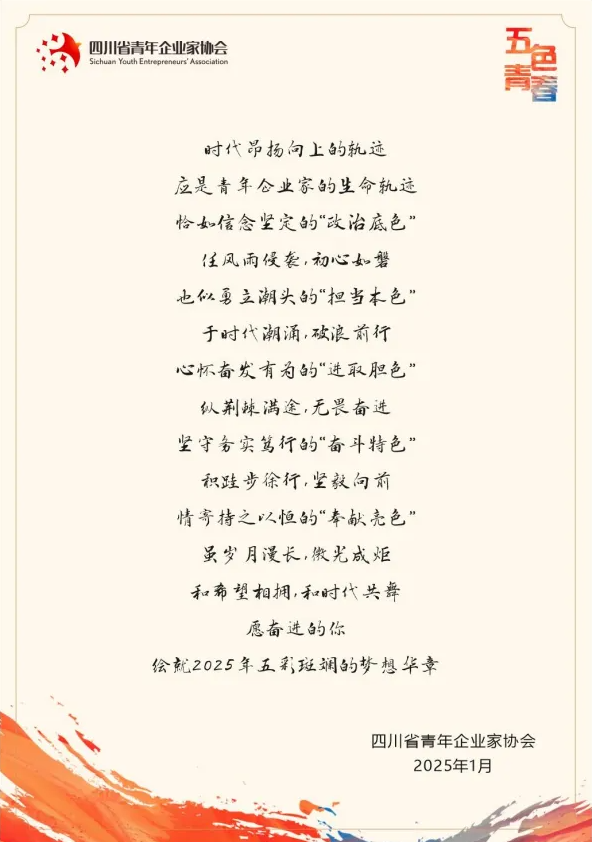 四川省青年企业家协会
Sichuan Youth Entrepreneurs' Association
五色
青春
时代昂扬向上的轨迹
应是青年企业家的生命轨迹
恰如信念坚定的“政治底色”
任风雨侵袭,初心如磐
也似勇立潮头的“担当本色”
于时代潮涌,破浪前行
心怀奋发有为的“进取胆色”
纵荆棘满途,无畏奋进
坚守务实笃行的“奋斗特色”
积跬步徐行,坚毅向前
情寄持之以恒的“奉献亮色”
虽岁月漫长,微光成炬
和希望相拥,和时代共舞
愿奋进的你
绘就2025年五彩斑斓的梦想华章
四川省青年企业家协会
2025年1月